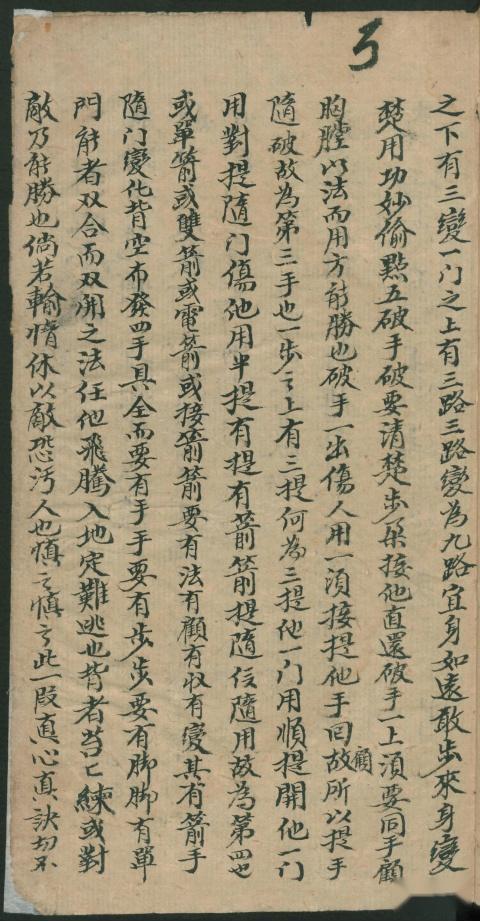 之下有三變一门之上有三路三路變為九路宜身如遠敢步來身變
楚用功妙偷點五破手破要清楚步朵接他直還破手一上須要同手顧
胸膛以法而用方能勝也破手一出傷人用一須接提他手回故顧所以提手
隨破故為第三手也一步之上有三提何為三提他一门用順提開他一门
用對提隨门傷他用半提有提有箭箭提隨後隨用故為第四也
或單箭或雙箭或電箭或接箭箭要有法有顧有收有變其有箭手
隨门變化皆空布發四手具全而要有手手要有步步要有脚脚有單
門能者双合而双開之法任他飛騰入地定難逃也皆者当匕練或對
敵乃能勝也倘若輸惰休以敵恐污人也慎之慎之此一段真心真訣切不